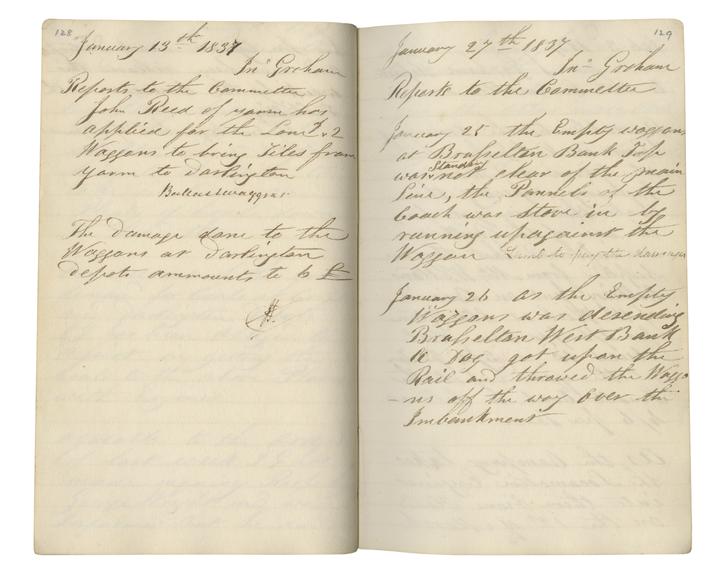 128
January 13th 1837
Jnº Graham
Reports to the Committee
John Reed of yarm has
applied for the Loan of 2
Waggons to bring Tiles from
yarm to Darlington
Ballast waggons
The damage done to the
Waggons at Darlington
depots ammounts to 6 £
129
January 27th 1837
Jnº Graham
Reports to the Committee
January 25 the Empty waggons
at Brusselton Bank Top
Standing
was not clear of the main
Line, the Pannels of the
Coach was stove in by
running up against the
Waggon Lamb to pay the damages
January 26 as the Empty
Waggons was desending
Brusselton West Bank
a Dog got upon the
Rail and throwed the Waggo
-ns off the way over the
Imbankment